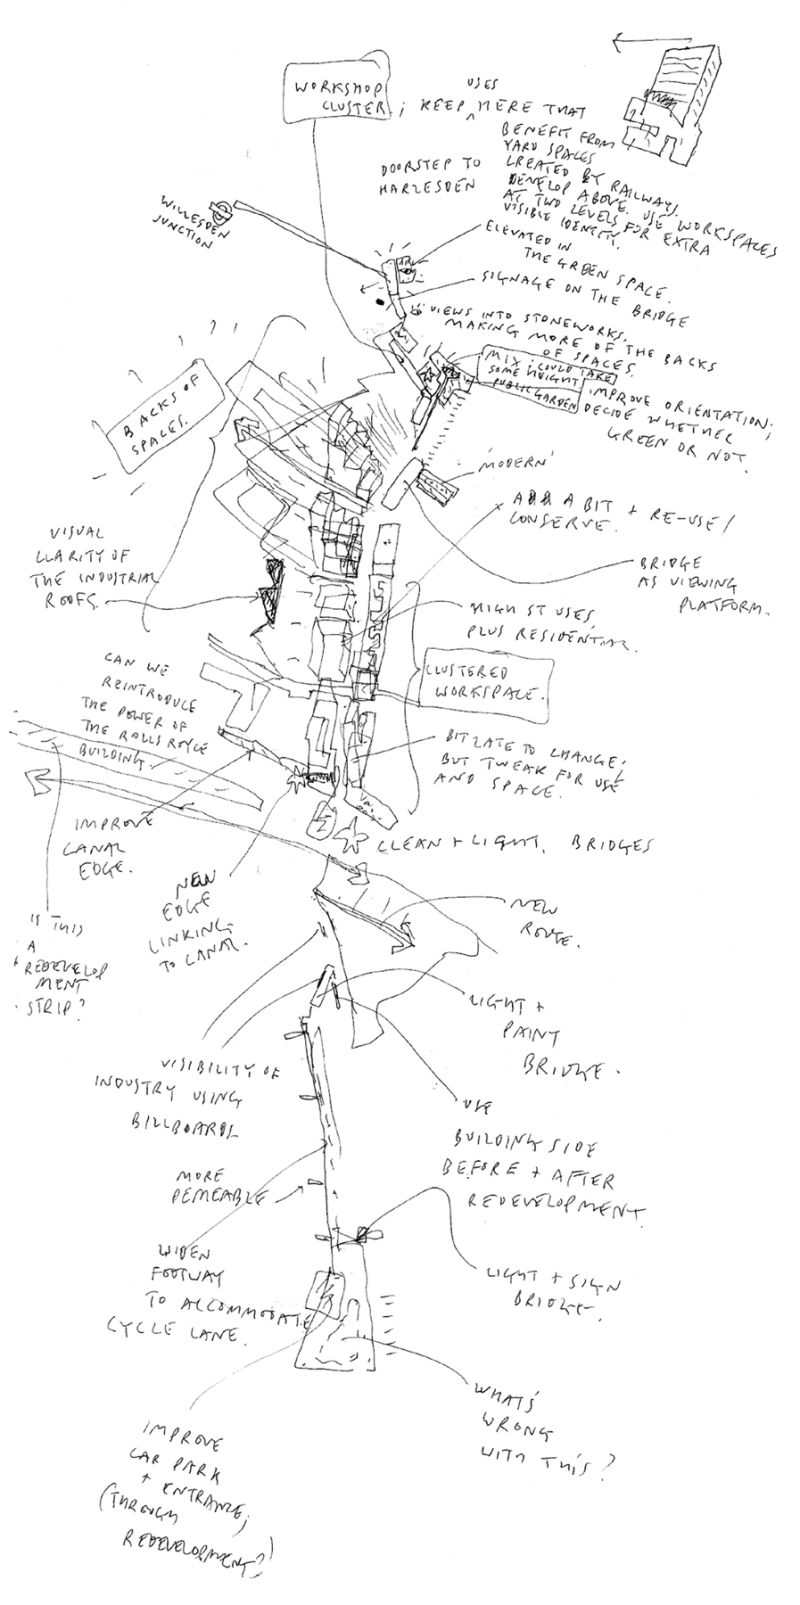 WORKSHOP
CLUSTER; KEEP USES HERE THAT
BENEFIT FROM
YARD SPACES
CREATED BY RAILWAYS.
DEVELOP ABOVE. USE WORKSPACES
AT TWO LEVELS FOR EXTRA
VISIBLE IDENTITY.
DOORSTEP TO
HARLESDEN
WILLESDEN
JUNCTION
ELEVATED IN
THE GREEN SPACE.
SIGNAGE ON THE BRIDGE
VIEWS INTO STONEWORKS.
MAKING MORE OF THE BACKS
OF SPACES.
MIX; COULD TAKE
SOME HEIGHT
PUBLIC GARDEN
IMPROVE ORIENTATION;
DECIDE WHETHER
GREEN OR NOT.
BACKS OF
SPACES.
'MODERN'
A BIT + RE-USE/
CONSERVE.
VISUAL
CLARITY OF
THE INDUSTRIAL
ROOFS.
BRIDGE
AS VIEWING
PLATFORM.
HIGH ST USES,
PLUS RESIDENTIAL.
CLUSTERED
WORKSPACE.
CAN WE
REINTRODUCE
THE POWER OF
THE ROLLS ROYCE
BUILDING.
BIT LATE TO CHANGE;
BUT TWEAK FOR USE
AND SPACE.
IMPROVE
CANAL
EDGE.
CLEAN + LIGHT. BRIDGES
NEW
EDGE
LINKING
TO CANAL.
NEW
ROUTE.
IS THIS
A
REDEVELOP
MENT
STRIP?
LIGHT +
PAINT
BRIDGE.
VISIBILITY OF
INDUSTRY USING
BILLBOARDS
USE
BUILDING SIDE
BEFORE + AFTER
REDEVELOPMENT.
MORE
PEMEABLE
WIDEN
FOOTWAY
TO ACCOMMODATE
CYCLE LANE.
LIGHT + SIGN
BRIDGE.
WHAT'S
WRONG
WITH THIS?
IMPROVE
CAR PARK
+ ENTRANCE;
(THROUGH
REDEVELOPMENT?)